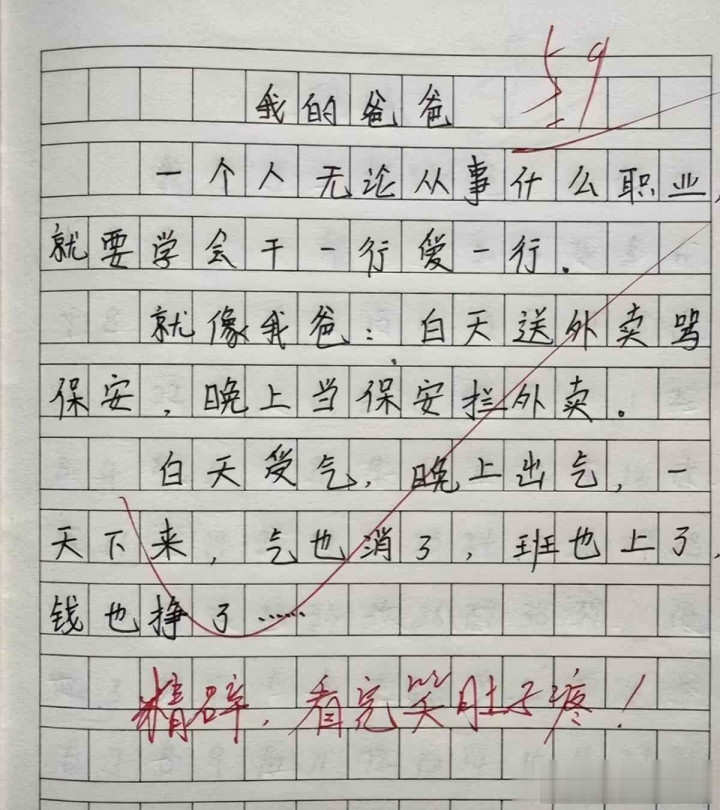 我的爸爸 59
一个人无论从事什么职业,
就要学会干一行爱一行.
就像我爸:白天送外卖骂
保安,晚上当保安拦外卖。
白天受气,晚上出气,一
天下来,气也消了,班也上了,
钱也挣了……
精辟,看完笑肚子疼!